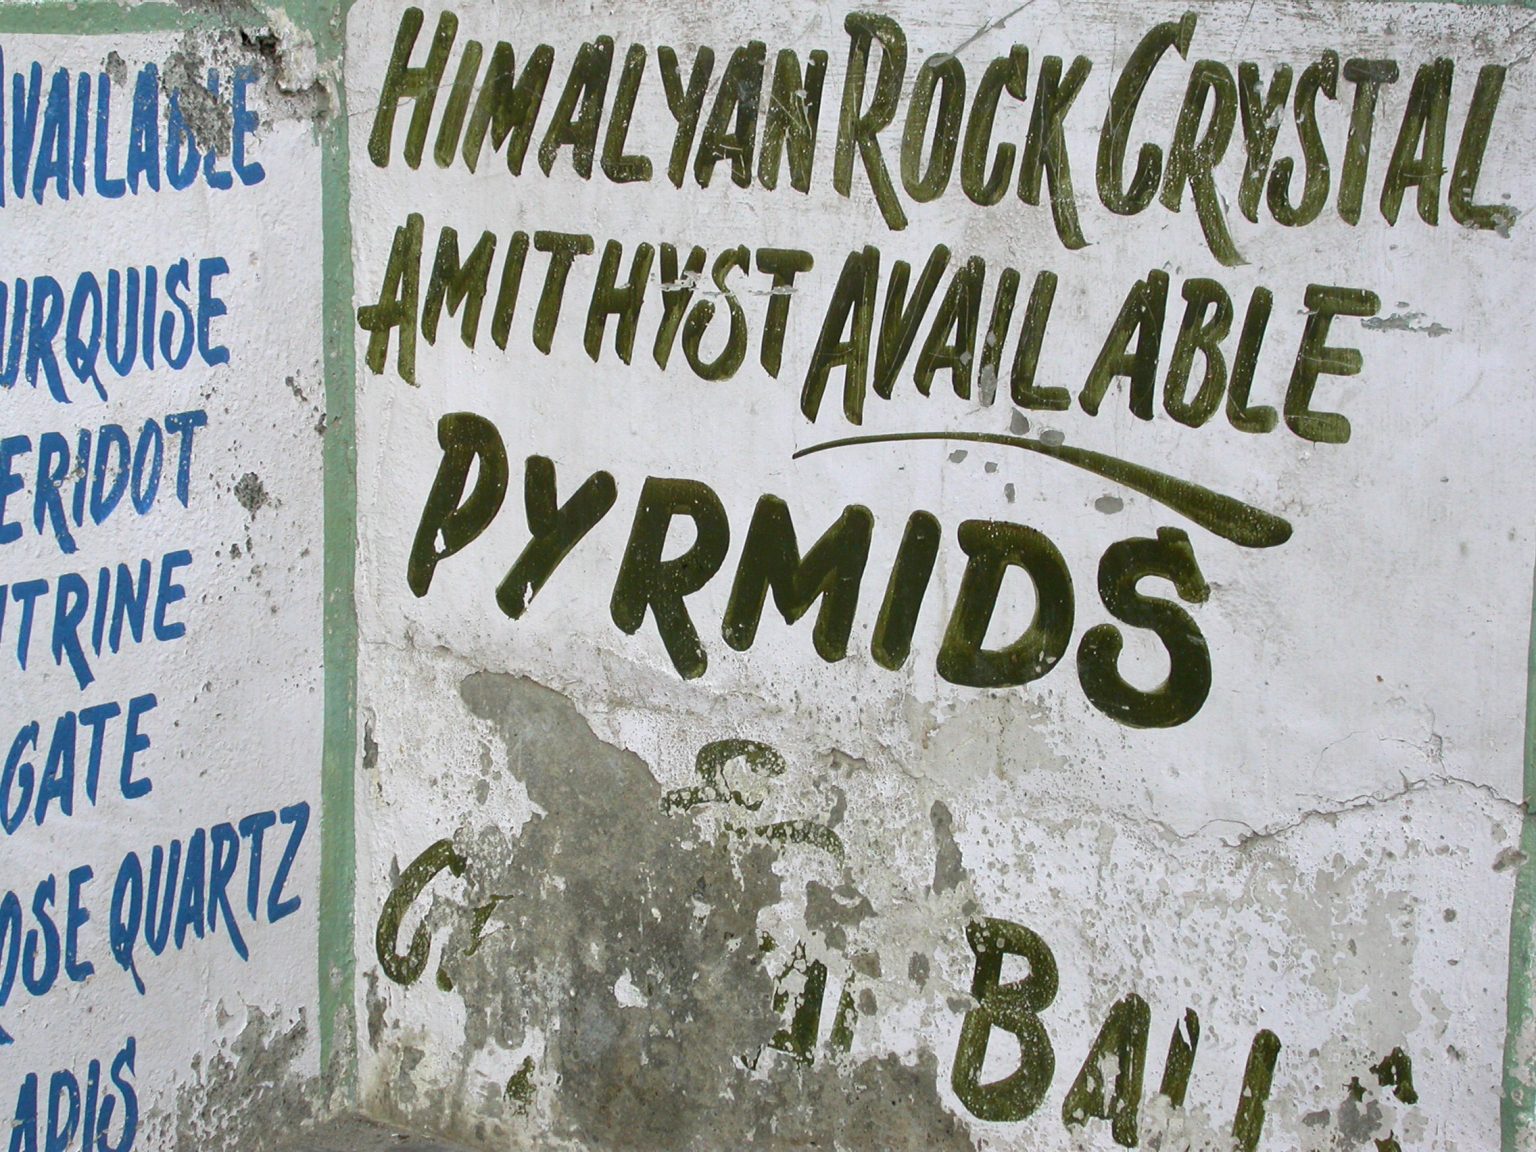 AVAILABLE
URQUISE
ERIDOT
ITRINE
GATE
OSE QUARTZ
ADIS
HIMALYAN ROCK CRYSTAL
AMITHYST AVAILABLE
PYRMIDS
BALL